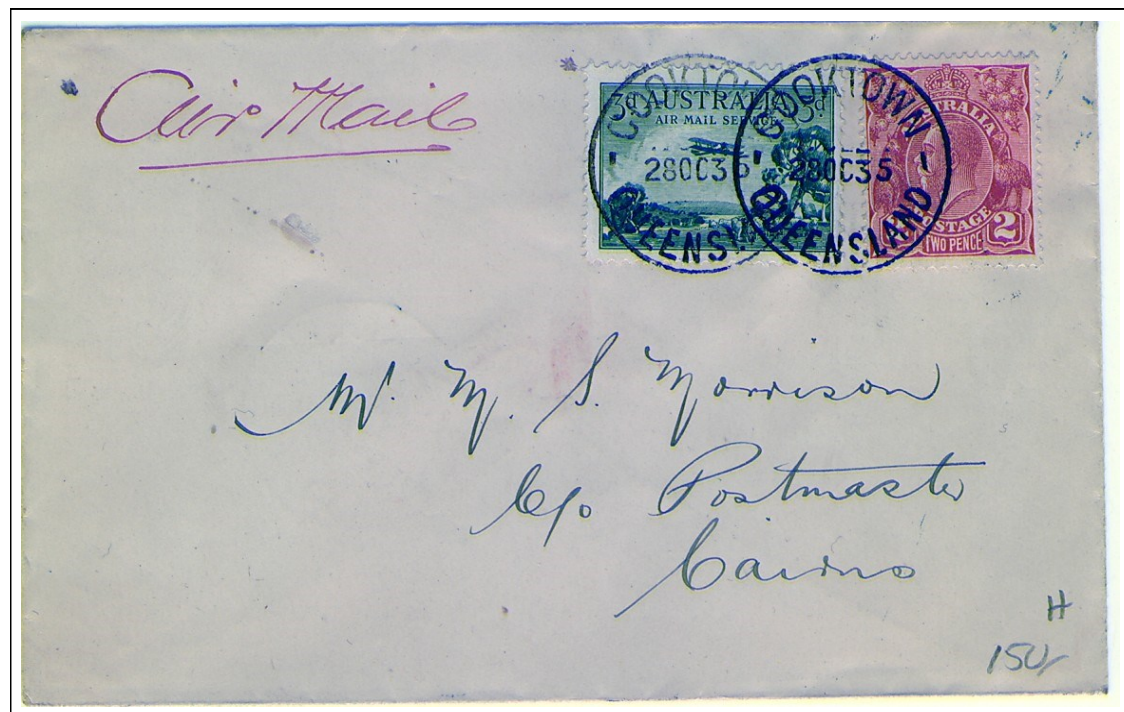 Air Mail
3d AUSTRALIA 3d
AIR MAIL SERVICE
COOKTOWN
28OC35
QUEENSLAND
COOKTOWN
28OC35
QUEENSLAND
POSTAGE
TWO PENCE 2
Mr. M. S. Morrison
C/o Postmaster
Cairns
H
150/